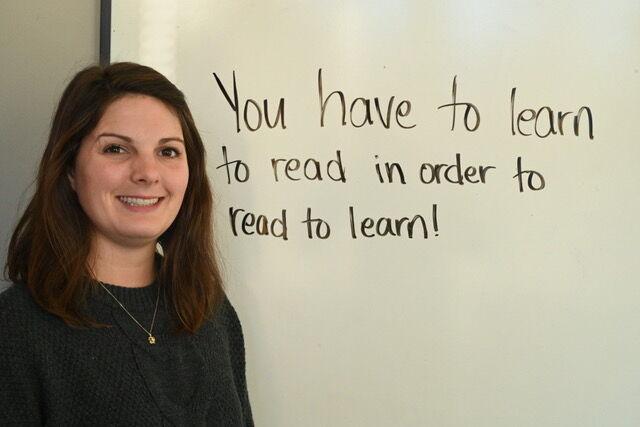 You have to learn
to read in order to
read to learn!